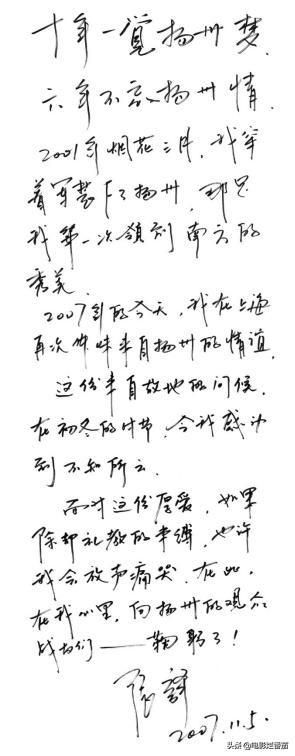 十年一觉扬州梦
六年不忘扬州情
2001年烟花三月，我穿
着军装下了扬州，那是
我第一次领到南方的
秀美
2007年的今天，我在上海
再次体味来自扬州的情谊
这份来自故地的问候，
在初冬的时节，令我感动
到不知所云
面对这份厚爱，如果
除却礼教的束缚，也许
我会放声痛哭，在此，
在我心里，向扬州的观众
战友们——鞠躬了！
2007.11.5.
头条@电影烂番茄